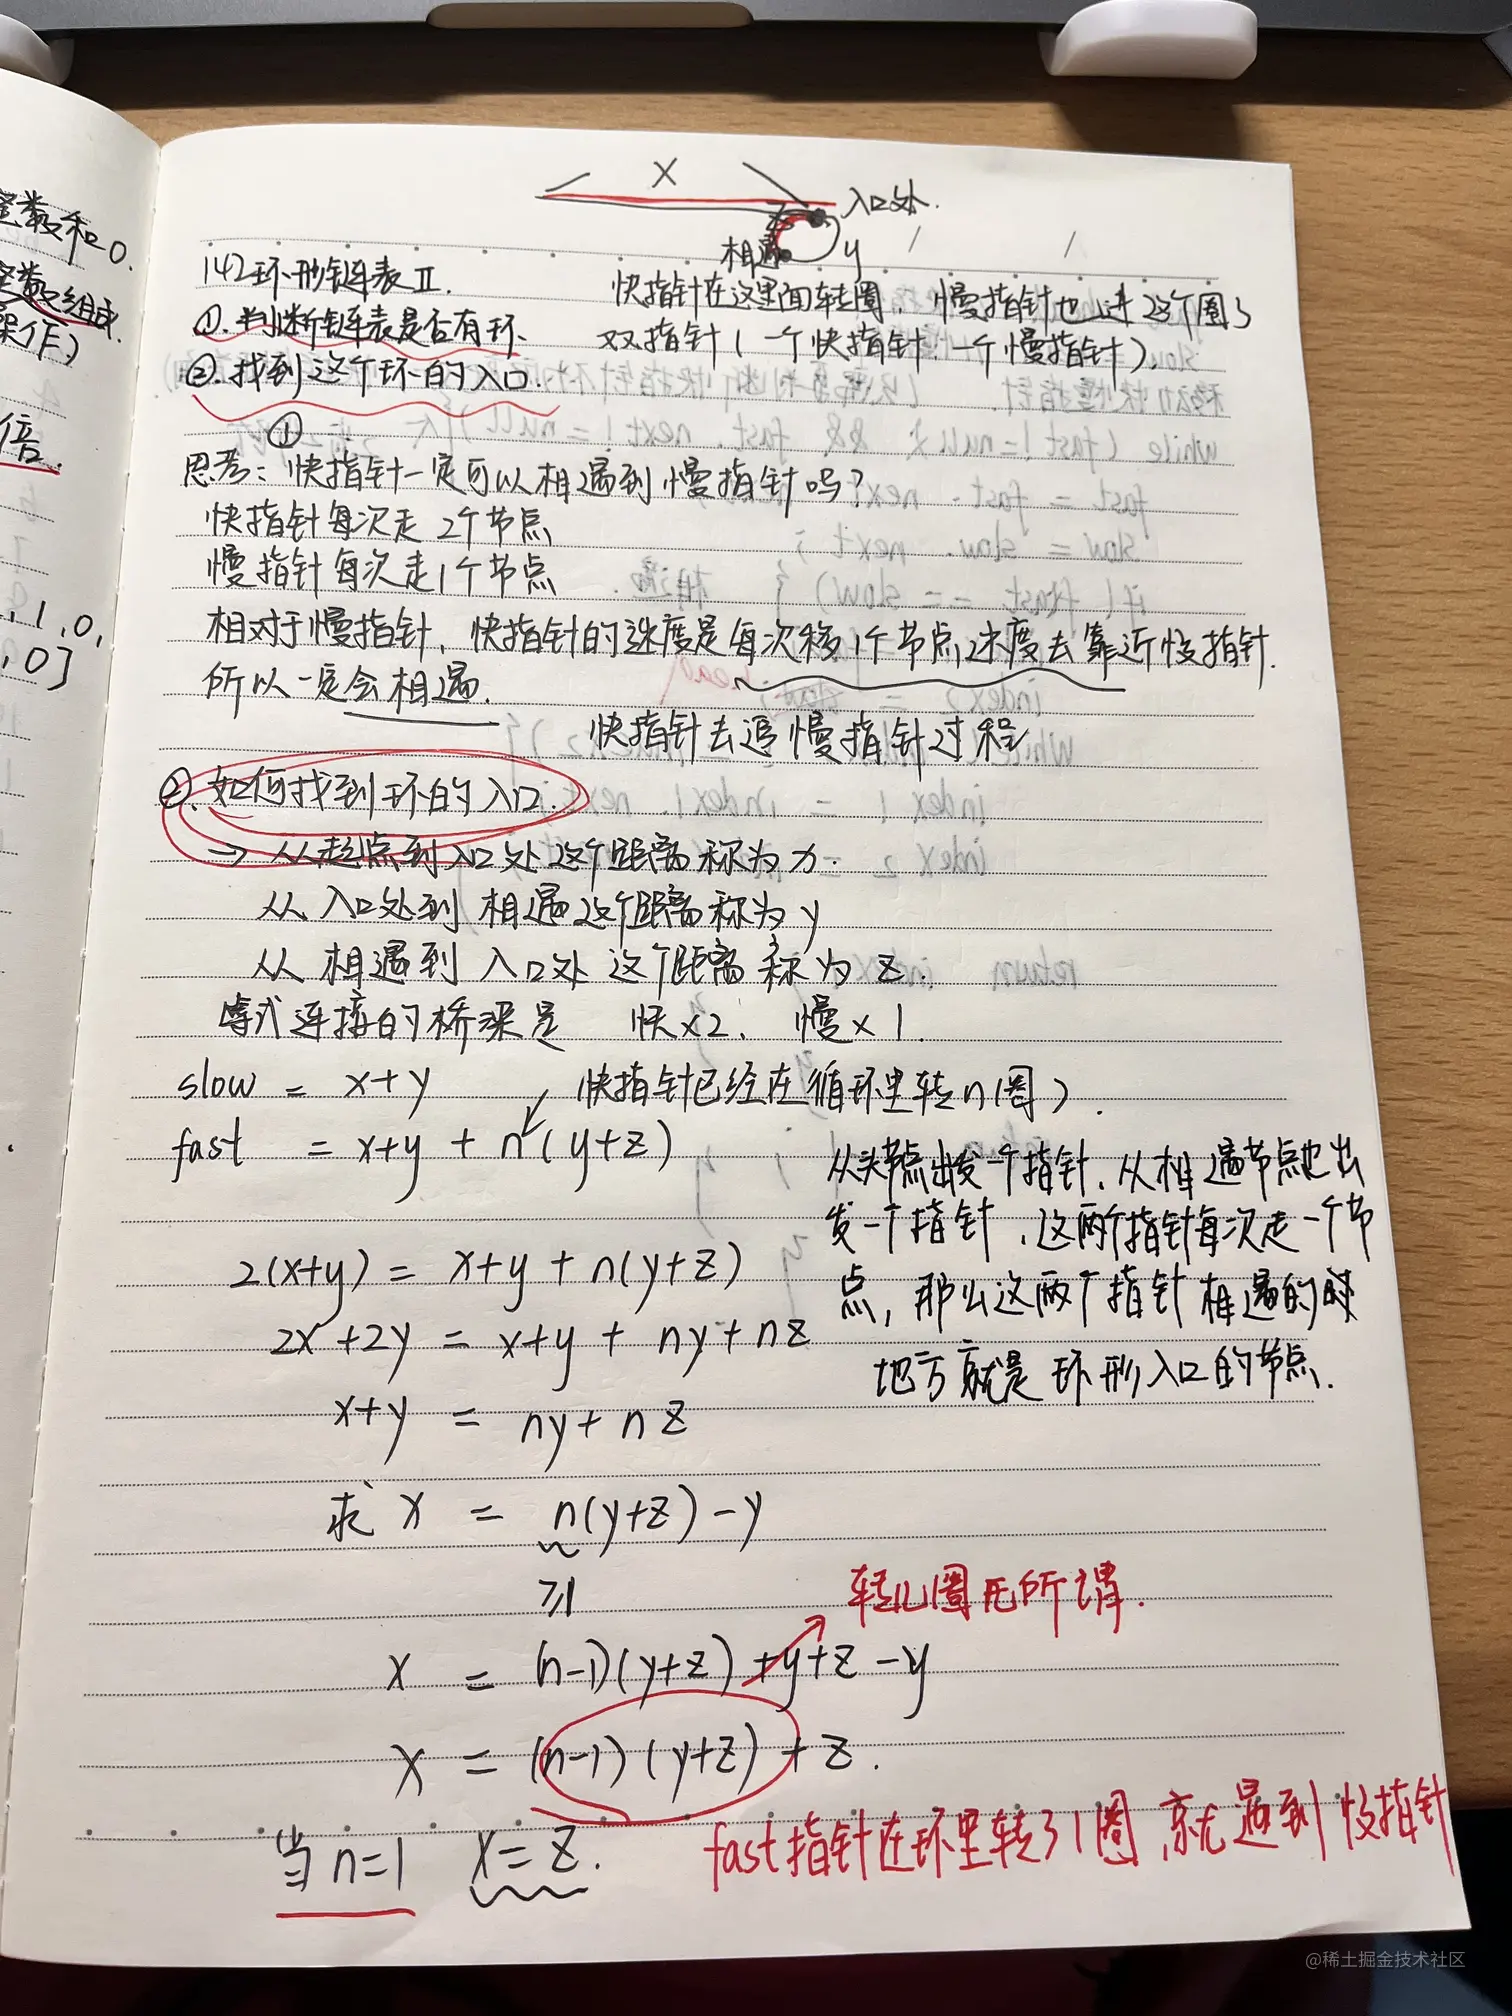 整数和0.
整数组成.
操作)
倍.
,1,0,
,0]
X
入口处.
相遇
y
142环形链表II.
快指针在这里面转圈, 慢指针也进这个圈了
①.判断链表是否有环.
双指针(一个快指针 一个慢指针).
②.找到这个环的入口.
①
思考:快指针一定可以相遇到慢指针吗?
快指针每次走2个节点
慢指针每次走1个节点
相对于慢指针,快指针的速度是每次移1个节点速度去靠近慢指针.
所以一定会相遇.
快指针去追慢指针过程
②.如何找到环的入口.
→ 从起点到入口处这个距离称为x.
从入口处到相遇这个距离称为y
从相遇到入口处这个距离称为z.
等式连接的桥梁是 快x2. 慢x1.
slow = x+y
快指针已经在循环里转n(圈).
fast = x+y + n(y+z)
从头节点出发一个指针,从相遇节点也出
发一个指针,这两个指针每次走一个节
点,那么这两个指针相遇的
地方就是环形入口的节点.
2(x+y) = x+y + n(y+z)
2x+2y = x+y + ny+nz
x+y = ny+nz
求 x = n(y+z)-y
≥1
转几圈无所谓.
x = (n-1)(y+z)+y+z-y
x = (n-1)(y+z)+z.
当n=1 x=z.
fast指针在环里转了1圈,就遇到慢指针
@稀土掘金技术社区